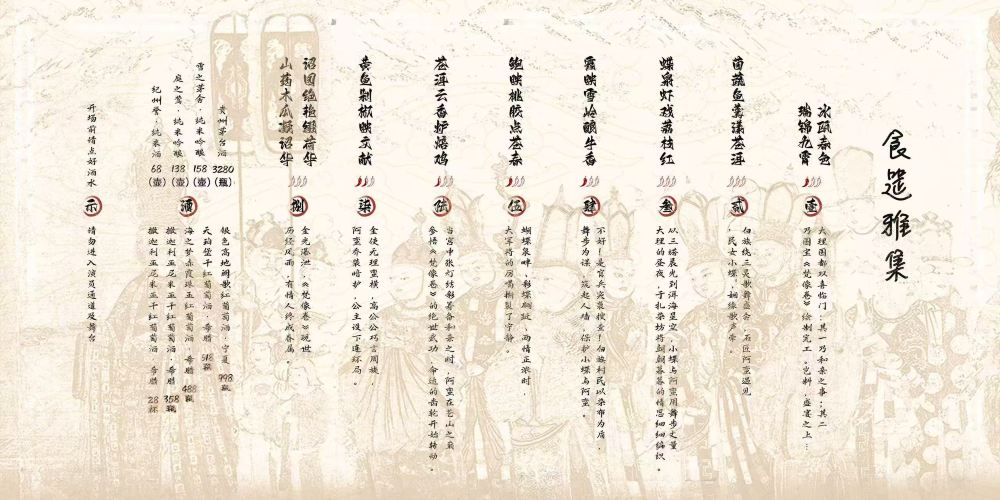 食遣雅集
冰瓯春色
瑞锦九霄
壹
大理国都双喜临门：其一乃和亲之事；其二
乃国宝《梵像卷》绘制完工。岂料，盛宴之上…
菌蔬鱼羹漾苍洱
贰
白族绕三灵歌舞盛会，石匠阿蛮遇见
民女小蝶，姻缘歌声牵。
蝶泉虾戏荔枝红
叁
从三塔晨光到洱海星空，小蝶与阿蛮用舞步丈量
大理的昼夜，于扎染坊将朝朝暮暮的情思细细编织。
霞映雪岭酿牛香
肆
不好！是官兵突袭搜查！白族村民以染布为盾，
舞步为谋，筑起人墙，保护小蝶与阿蛮。
鲍映桃胶点苍春
伍
蝴蝶泉畔，彩蝶翩跹，两情正浓时，
大军将的厉喝撕裂了宁静。
苍洱云香炉焙鸡
陆
当宫中张灯结彩筹备和亲之时，阿蛮在苍山之巅
参悟《梵像卷》的绝世武功，命运的齿轮开始转动。
黄鱼剁椒映天献
柒
金使无理蛮横，高公公巧言周旋，
阿蛮乔装暗护，公主设下连环局。
诏国绝檀缀荷华
山药木瓜凝诏华
捌
金光湛湛，《梵像卷》现世
历经风雨，有情人终成眷属。
贵州茅台酒 3280（瓶）
雪之茅舍·纯米吟酿 158（壶）
庭之莺·纯米吟酿 138（壶）
纪州誉·纯米酒 68（壶）
酒
银色高地阙歌红葡萄酒·宁夏 998瓶
天珀堡干红葡萄酒·希腊 518瓶
海之梦赤霞珠玉红葡萄酒·希腊 488瓶
撒迦利亚尼米亚干红葡萄酒·希腊 358瓶
撒迦利亚尼米亚干红葡萄酒·希腊 28杯
开场前请点好酒水
示
请勿进入演员通道及舞台